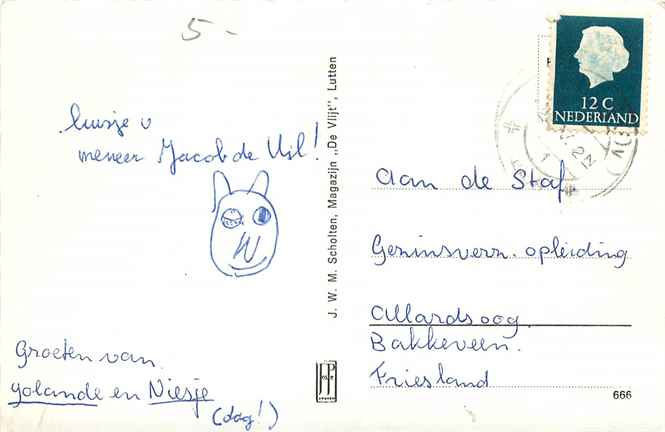 5-
12 C
NEDERLAND
meneer Jacob de Uil!
J. W. M. Scholten, Magazijn „De Vlijt”, Lutten
aan de Staf
Gezinsverz. opleiding
Allardsoog
Bakkeveen.
Friesland
Groeten van
Yolande en Niesje
(dag!)
666